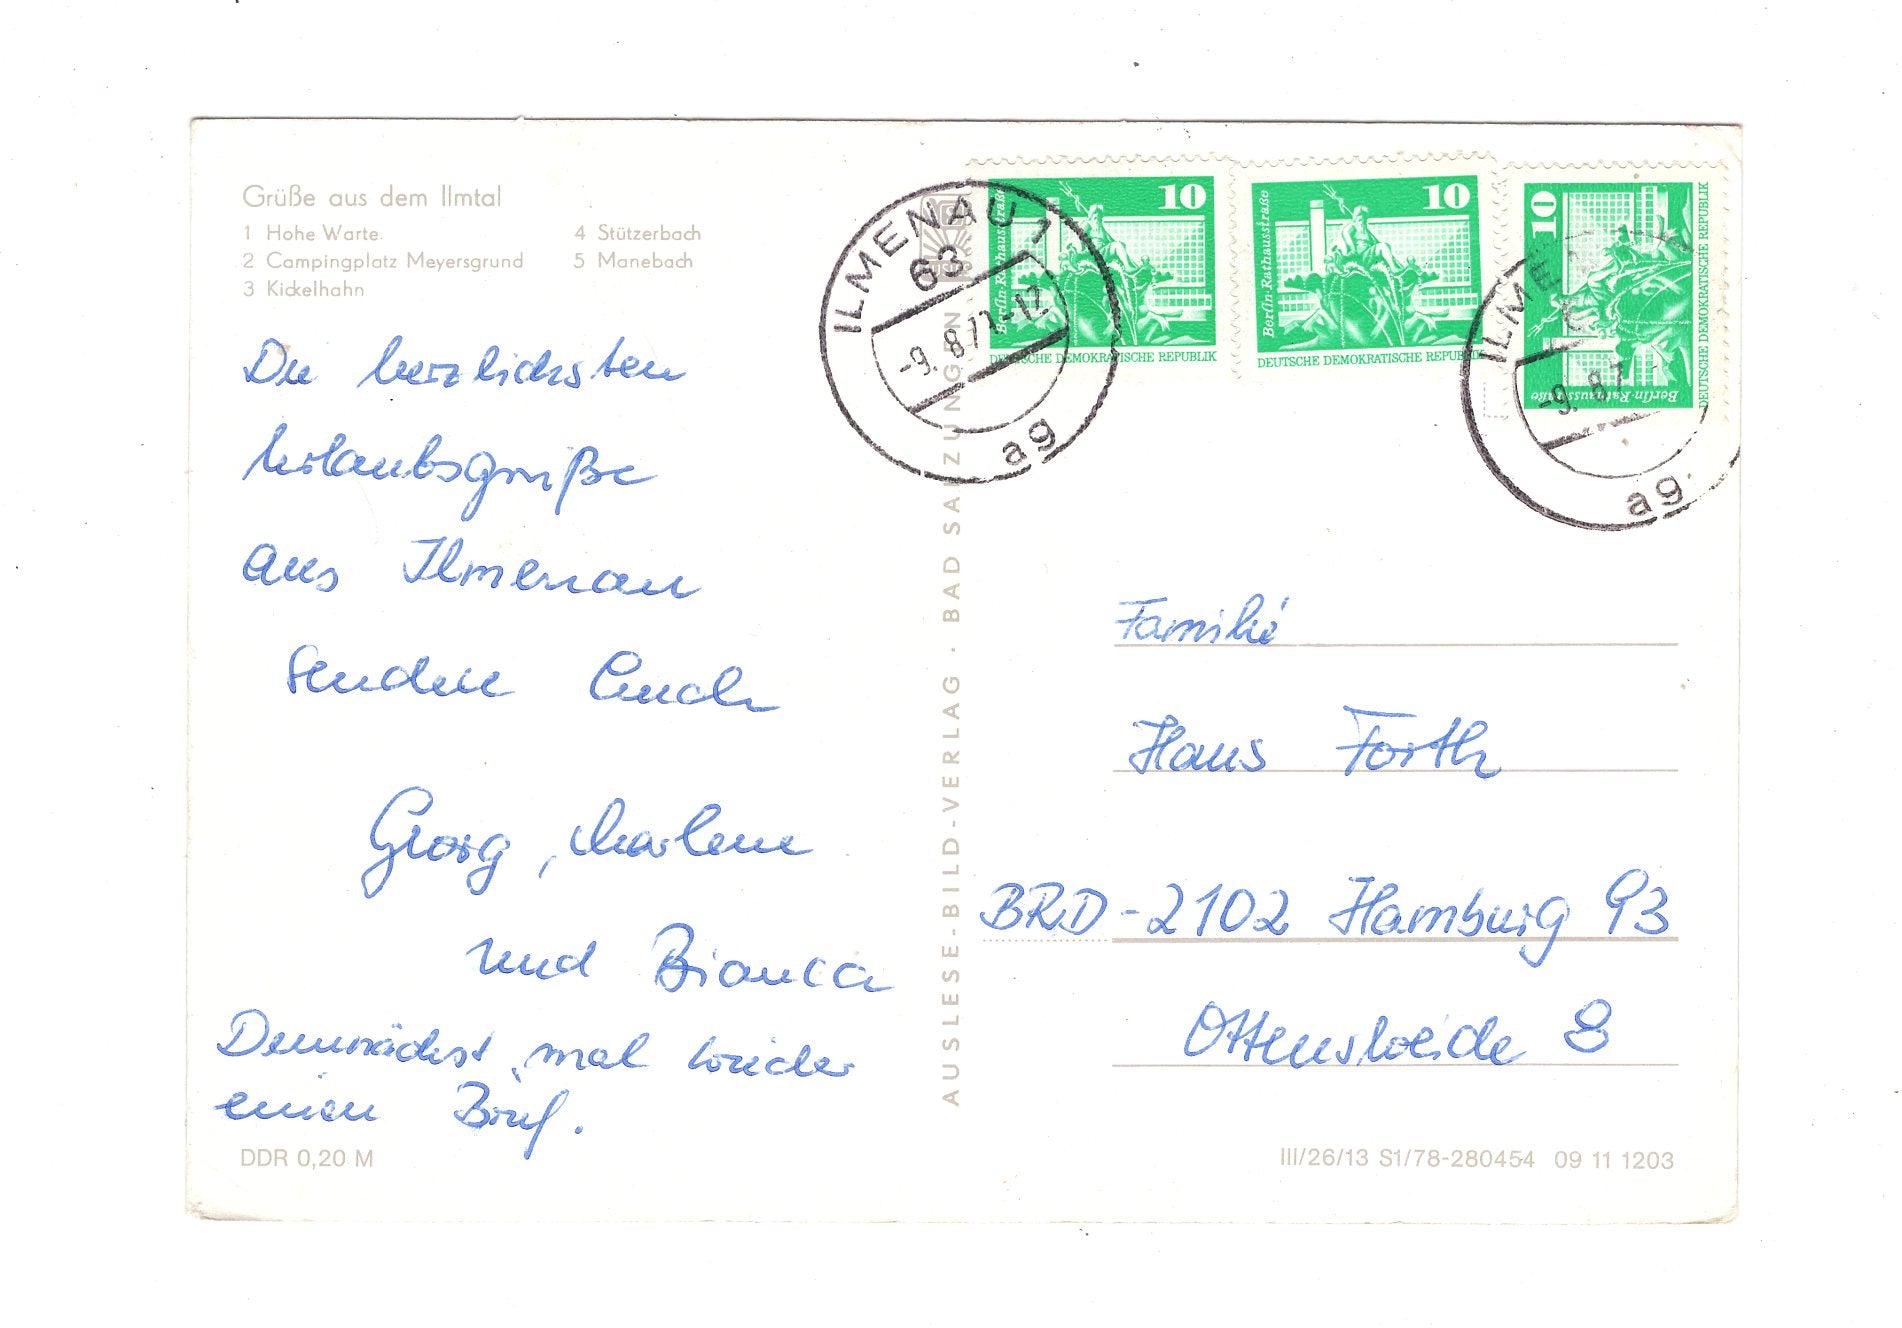 Grüße aus dem Ilmtal
1 Hohe Warte
2 Campingplatz Meyersgrund
3 Kickelhahn
4 Stützerbach
5 Manebach
Die herzlichsten
Urlaubsgrüße
aus Ilmenau
senden Euch
Georg, Marlene
und Bianca
Demnächst mal wieder
einen Brief.
DDR 0,20 M
AUSLESE-BILD-VERLAG · BAD SALZUNGEN
ILMENAU 1
63
-9. 8.7 -12
ag
10
Berlin-Rathausstraße
DEUTSCHE DEMOKRATISCHE REPUBLIK
10
Berlin-Rathausstraße
DEUTSCHE DEMOKRATISCHE REPUBLIK
10
Berlin-Rathausstraße
DEUTSCHE DEMOKRATISCHE REPUBLIK
ILME
-9. 8.7
ag
Familie
Hans Forth
BRD-2102 Hamburg 93
Ottensweide 8
III/26/13 S1/78-280454 09 11 1203